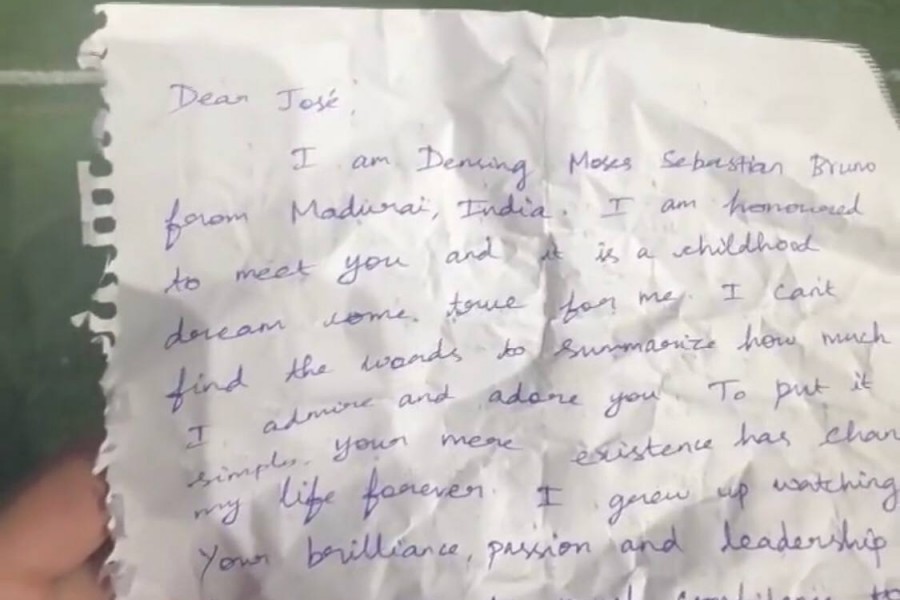 Dear José,
I am Densing Moses Sebastian Bruno
from Madurai, India. I am honoured
to meet you and it is a childhood
dream come true for me. I can't
find the words to summarize how much
I admire and adore you. To put it
simple, your mere existence has chan
my life forever. I grew up watching
Your brilliance, passion and leadership